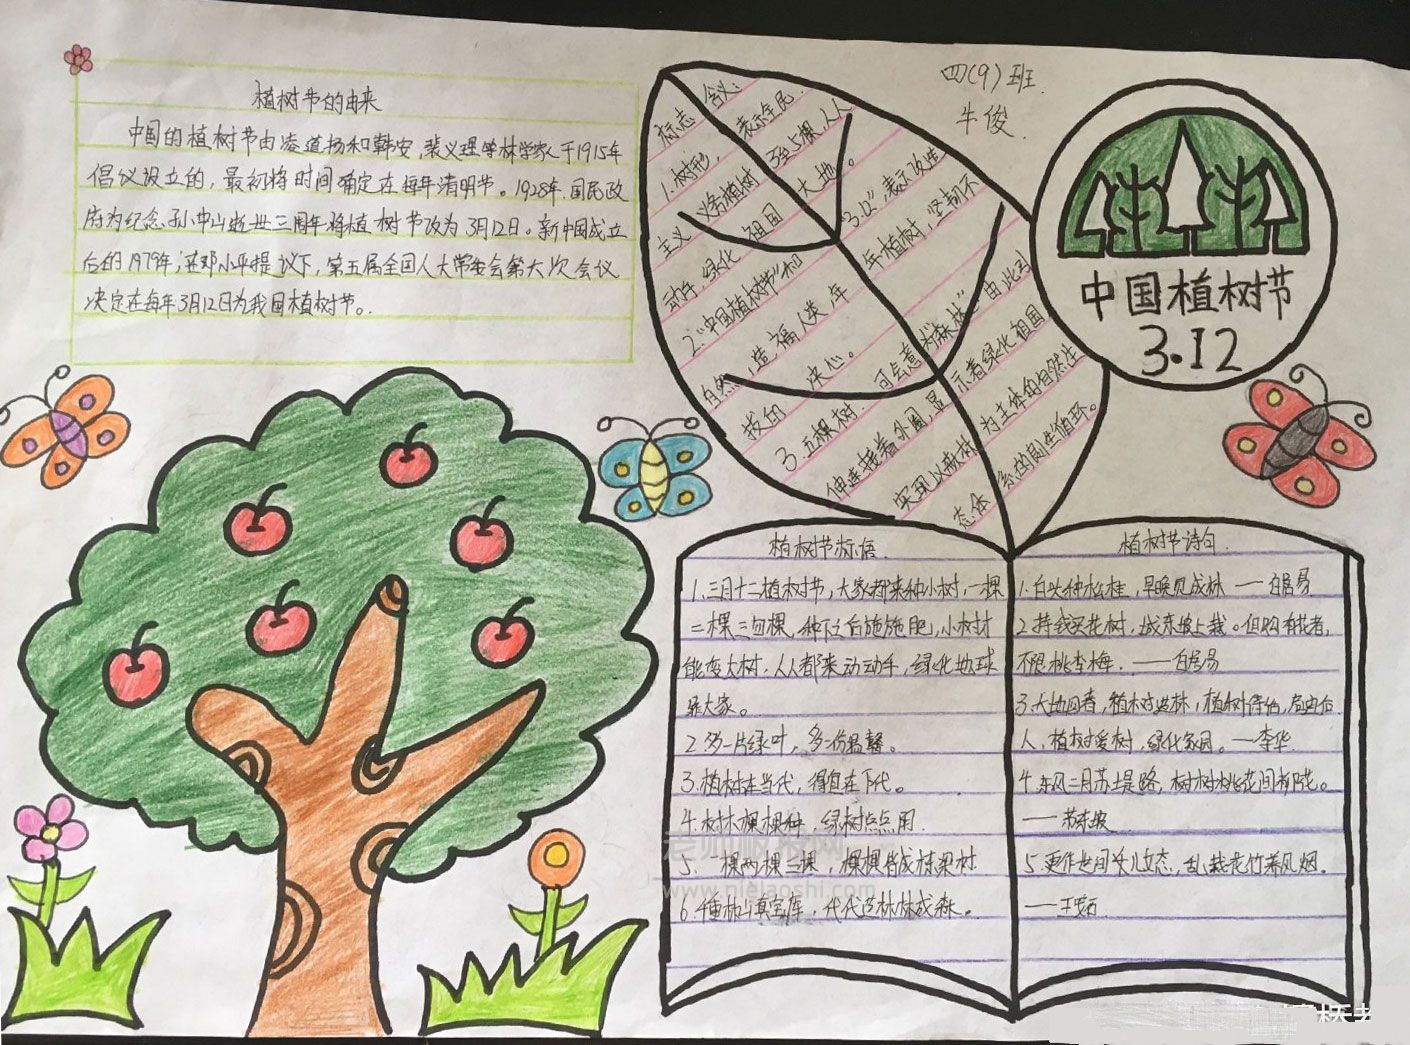 植树节的由来
中国的植树节由凌道扬和韩安,裴义理等林学家于1915年
倡议设立的,最初将时间确定在每年清明节。1928年,国民政
府为纪念孙中山逝世三周年将植树节改为3月12日。新中国成立
后的1979年,在邓小平提议下,第五届全国人大常委会第六次会议
决定在每年3月12日为我国植树节。
四(9)班
牛俊
标志含义:
1.树形,表示全民
义务植树3至5棵,人人
动手,绿化祖国大地。
2."中国植树节"和"3.12",表示改造
自然,造福人类,年年植树,坚韧不
拔的决心。
3.五棵树,可会意为"森林",由此引
伸连接着外圈,显示着绿化祖国
实现以森林为主体的自然生
态体系的良性循环。
中国植树节
3.12
植树节标语
1.三月十二植树节,大家都来种小树,一棵
二棵三四棵,种下之后施施肥,小树才
能变大树,人人都来动动手,绿化地球
靠大家。
2.多一片绿叶,多一份温馨。
3.植树在当代,得益在下代。
4.树木棵棵种,绿树点点用
5.一棵两棵三棵,棵棵皆成栋梁材
代代造林林成森。
植树节诗句
1.白头种松桂,早晚见成林——白居易
2.持钱买花树,城东坡上栽。但购有花者,
不限桃李梅.——白居易
3.大地回春,植树造林,植树得
人,植树爱树,绿化家园。—李华
4.东风二月苏堤路,树树桃花间柳花。
——苏东坡
5.更作世间儿女态,乱栽花竹养风烟。
——王安石
老师板报网
www.nielaoshi.com